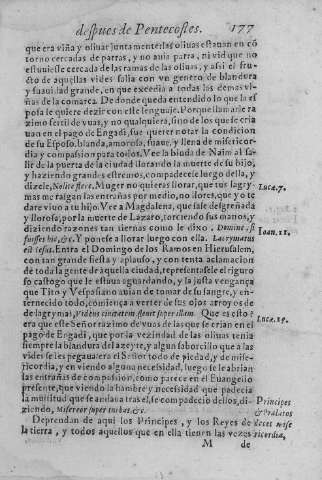 despues de Pentecostes. 177
que era viña y oliuar juntamente: las oliuas estauan en cõ
torno cercadas de parras, y no auia parra, ni vid que no
estuuiesse cercada de las ramas de las oliuas, y assi el fru-
cto de aquellas vides salia con vn genero de blandura
y suauidad grande, en que excedia a todas las demas vi-
ñas de la comarca. De donde queda entendido lo que la es
posa se quiere dezir con este lenguaje. Porque llamarle ra
zimo fertil de vuas, y no qualquiera, sino de los que se cria
uan en el pago de Engadi, fue querer notar la condicion
de su Esposo blanda, amorosa, suaue, y llena de miseri-
cordia y compassion para todos. Vee la biuda de Naim al sa-
lir de la puerta de la ciudad llorando la muerte de su hijo,
y haziendo grandes estremos, compadecese luego della, y
dizele, Noli te flere. Muger no quieras llorar, que tus lagry-
mas me rasgan las entrañas por medio, no llores, que yo te
dare viuo a tu hijo. Vee a Magdalena, que sale desgreñada
y llorosa, por la muerte de Lazaro, torciendo sus manos, y
diziendo razones tan tiernas como le dixo. Domine, si
fuisses hic, &c. Y ponese a llorar luego con ella. Lacrymatus
est Iesus. Entra el Domingo de los Ramos en Hierusalem,
con tan grande fiesta y aplauso, y con tanta aclamacion
de toda la gente de aquella ciudad, representasele el riguro
so castigo que le estaua aguardando, y la justa vengança
que Tito y Vespasiano auian de tomar de su sangre, y en-
ternecido todo, comiença a verter de sus ojos arroyos de
de lagrymas, Videns ciuitatem fleuit super illam. Que es esto:
era que este Señor razimo de vuas de las que se crian en el
pago de Engadi, que por la vezindad de las oliuas tenia
siempre la blandura del azeyte, y algun saborcillo que a las
vides se les pegaua: era el Señor todo de piedad, y de mise-
ricordia, y en viendo alguna necessidad, luego se le abrian
las entrañas de compassion, como parece en el Euangelio
presente, que viendo la hambre y necessidad que padecia
la multitud que andaua tras el, se compadecio dellos, di-
ziendo, Misereor super turbas, &c.
Deprendan de aqui los Principes, y los Reyes de
la tierra, y todos aquellos que en ella tienen las vezes
M de
Luca. 7.
Ioan. 11.
Luca. 19.
Principes
& Pralatos
decet mise
ricordia,